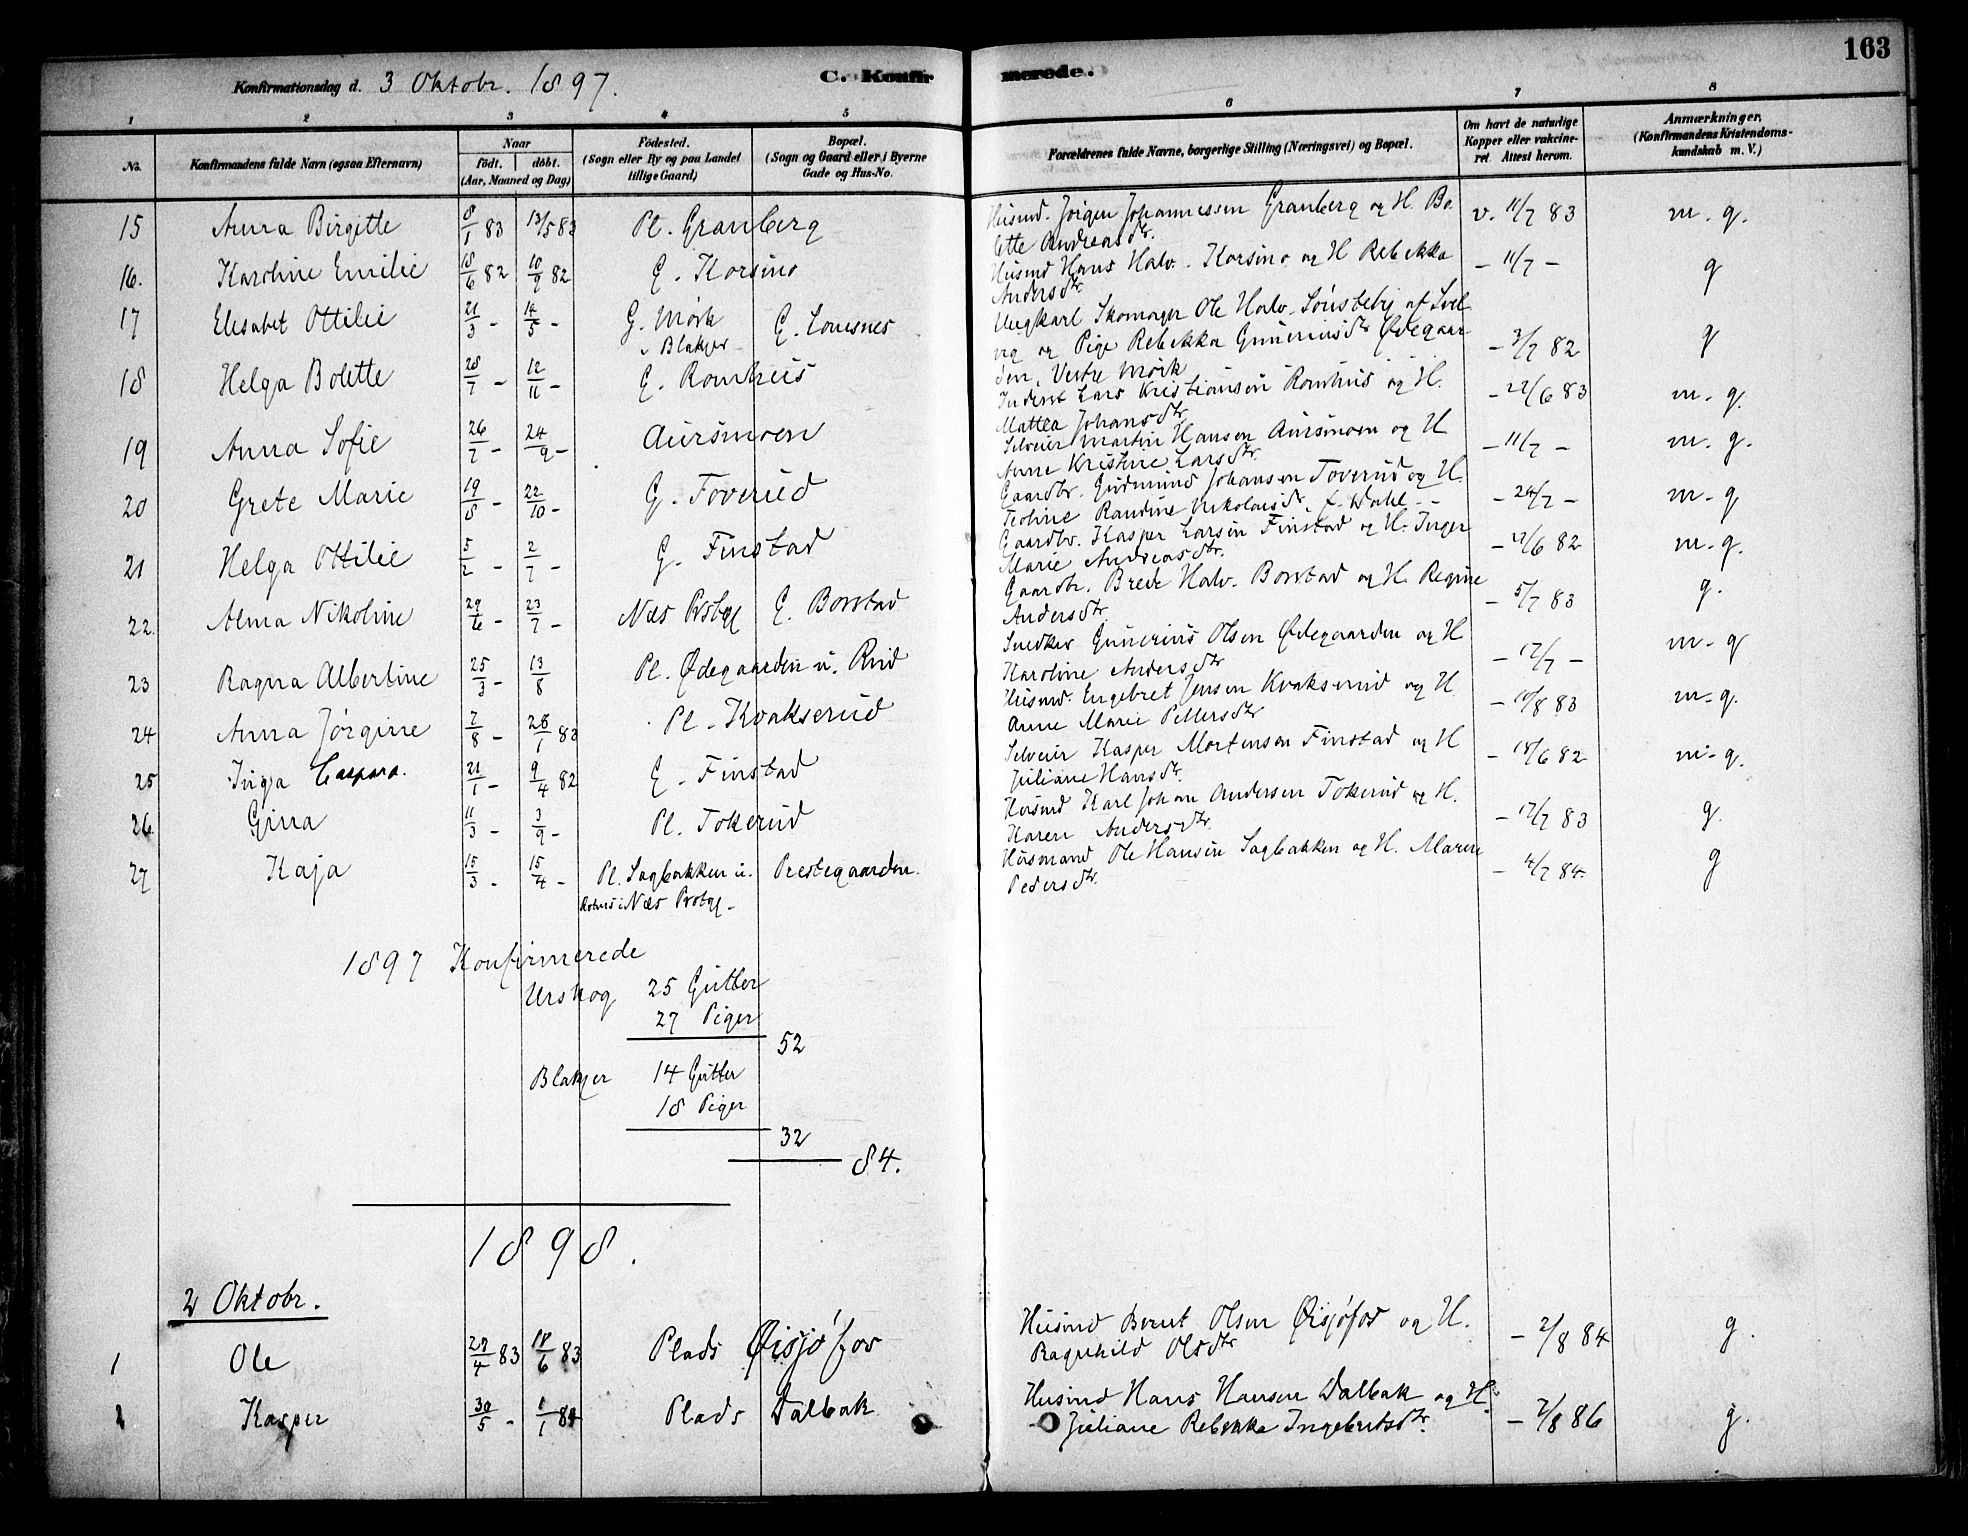 163
Konfirmationsdag d. 3 Oktobr. 1897.
C. Konfirmerede.
1 2 3 4 5 6 7 8
No.
Konfirmandens fulde Navn (ogsaa Efternavn)
Naar
født. døbt.
(Aar, Maaned og Dag)
Fødested.
(Sogn eller By og paa Landet
tillige Gaard)
Bopæl.
(Sogn og Gaard eller i Byerne
Gade og Hus-No.
Forældrenes fulde Navne, borgerlige Stilling (Næringsvei) og Bopæl.
Om havt de naturlige
Kopper eller vakcine-
ret. Attest herom.
Anmærkninger.
(Konfirmandens Kristendoms-
kundskab m. V.)
15 Anna Birgitte 8/1 83 13/5 83 Pl. Granberg Husmd. Jørgen Johannessen Granberg og H. Bo- v. 11/7 83 m. g.
lette Andreasdtr.
16. Karoline Emilie 18/6 82 10/9 82 G. Korsmo Husmd Hans Halv. Korsmo og H Rebekka - 11/7 - g
Andersdtr
17 Elisabet Ottilie 21/3 - 14/5 - G. Mørk G. Lousnes Ungkarl Skomager Ole Halv. Sönsteby af
i Blakjer vig og Pige Rebekka Guneriusdtr Ødegaar- - 3/7 82 g
den, Vestre Mørk
18 Helga Bolette 28/7 - 12/11 - G. Romhus Inderst Lars Kristiansen Romhus og H. - 22/6 83 m. g.
Mattea Johansdtr
19 Anna Sofie 26/7 - 24/9 - Aursmoen Selveier Martin Hansen Aursmoen og H - 11/7 - m. g.
Anne Kristine Larsdtr.
20 Grete Marie 19/8 - 22/10 - G. Toverud Gaardbr. Gudmund Johansen Toverud og H. - 24/7 - m. g
Teoline Randine Nikolaisdtr. f. Dahl
21 Helga Ottilie 5/2 - 2/7 - G. Finstad Gaardbr. Kasper Larsen Finstad og H. Inger - 22/6 82 m. g.
Marie Andreasdtr.
22. Alma Nikoline 29/6 - 23/7 - Næs Prstgj G. Borstad Gaardbr. Brede Halv. Borstad og H. Regine - 5/7 83 g.
Andersdtr
23 Ragna Albertine 25/3 - 13/8 Pl. Ødegaarden u. Rud Snedker Gunerius Olsen Ødegaarden og H - 12/7 - m. g
Karoline Andersdtr
24 Anna Jørgine 7/8 - 28/1 83 Pl. Kvakserud Husmd. Engebret Jensen Kvakserud og H - 10/8 83 m. g.
Anne Marie Pettersdtr
25 Inga Caspara. 21/1 - 9/4 82 G. Finstad Selveier Kasper Mortensen Finstad og H - 18/6 82 m. g.
Juliane Hansdtr.
26. Gina 11/3 - 3/9 - Pl. Tokerud Husmd Karl Johan Andersen Tokerud og H. - 17/7 83 g.
Karen Andersdtr.
27 Kaja 15/3 - 15/4 - Pl. Sagbakken u. Prestegaarden. Husmand Ole Hansen Sagbakken og H. Maren - 4/7 84. g
i Næs Prstgj - Pedersdtr.
1897 Konfirmerede
Urskog 25 Gutter
27 Piger
52
Blakjer 14 Gutter
18 Piger
32
84.
1898.
2 Oktobr.
1 Ole 27/4 83 18/6 83 Plads Øisjøfos Husmd Bernt Olsen Øisjøfos og H. - 2/8 84 g.
Ragnhild Olsdtr
2 Kasper 30/5 - 1/1 84 Plads Dalbak Husmd Hans Hansen Dalbak og H. - 7/8 86 g.
Juliane Rebekka Ingebretsdtr.